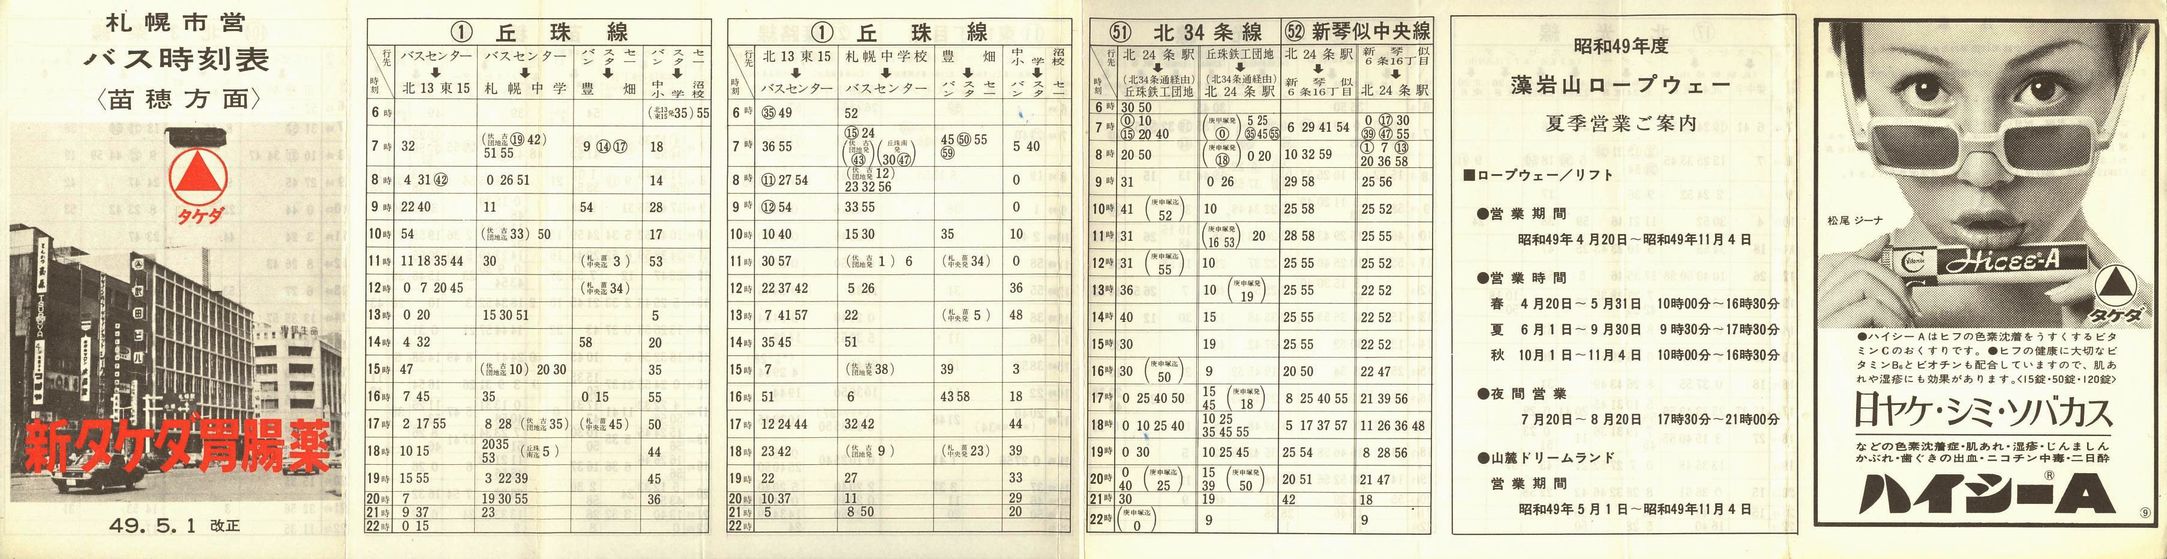 札幌市営
バス時刻表
〈苗穂方面〉
タケダ
新タケダ胃腸薬
49. 5. 1 改正
① 丘珠線
行先 時刻 バスセンター➡北13東15 バスセンター➡札幌中学 バスセンター➡豊畑 バスセンター➡中沼小学校
6時 (北13東15発35) 55
7時 32 (伏古団地迄⑲42) 51 55 9 ⑭ ⑰ 18
8時 4 31 ㊷ 0 26 51 14
9時 22 40 11 54 28
10時 54 (伏古団地迄33) 50 17
11時 11 18 35 44 30 (札苗中央迄3) 53
12時 0 7 20 45 (札苗中央迄34)
13時 0 20 15 30 51 5
14時 4 32 58 20
15時 47 (伏古団地迄10) 20 30 35
16時 7 45 35 0 15 55
17時 2 17 55 8 28 (伏古団地迄35) (札苗中央迄45) 50
18時 10 15 20 35 53 (丘珠南迄5) 44
19時 15 55 3 22 39 45
20時 7 19 30 55 36
21時 9 37 23
22時 0 15
① 丘珠線
行先 時刻 北13東15➡バスセンター 札幌中学校➡バスセンター 豊畑➡バスセンター 中沼小学校➡バスセンター
6時 ㉟ 49 52
7時 36 55 ⑮ 24 (伏古団地発㊸) (丘珠南発30 ㊼) 45 ㊿ 55 59 5 40
8時 ⑪ 27 54 (伏古団地発12) 23 32 56 0
9時 ⑫ 54 33 55 0
10時 10 40 15 30 35 10
11時 30 57 (伏古団地発1) 6 (札苗中央発34) 0
12時 22 37 42 5 26 36
13時 7 41 57 22 (札苗中央発5) 48
14時 35 45 51
15時 7 (伏古団地発38) 39 3
16時 51 6 43 58 18
17時 12 24 44 32 42 44
18時 23 42 (伏古団地発9) (札苗中央発23) 39
19時 22 27 33
20時 10 37 11 29
21時 5 8 50 20
22時
㊿+1 北34条線 52 新琴似中央線
行先 時刻 北24条駅➡(北34条通経由)丘珠鉄工団地 丘珠鉄工団地➡(北34条通経由)北24条駅 北24条駅➡新琴似6条16丁目 新琴似6条16丁目➡北24条駅
6時 30 50
7時 ⓪ 10 ⑮ 20 40 (庚申塚発⓪) 5 25 ㉟ 45 55 6 29 41 54 0 ⑰ 30 ㊴ ㊼ 55
8時 20 50 (庚申塚発⑱) 0 20 10 32 59 ① 7 ⑬ 20 36 58
9時 31 0 26 29 58 25 56
10時 41 (庚申塚迄52) 10 25 58 25 52
11時 31 (庚申塚発16 53) 20 28 58 25 55
12時 31 (庚申塚迄55) 10 25 55 25 52
13時 36 10 (庚申塚発19) 25 55 22 52
14時 40 15 25 55 25 52
15時 30 19 25 55 22 52
16時 30 (庚申塚迄50) 9 20 50 22 47
17時 0 25 40 50 15 45 (庚申塚発18) 8 25 40 55 21 39 56
18時 0 10 25 40 10 25 35 45 55 5 17 37 57 11 26 36 48
19時 0 30 10 25 45 25 54 8 28 56
20時 0 40 (庚申塚迄25) 15 39 (庚申塚発50) 20 51 21 47
21時 30 19 42 18
22時 (庚申塚迄0) 9 9
昭和49年度
藻岩山ロープウェー
夏季営業ご案内
■ロープウェー／リフト
●営業期間
昭和49年4月20日～昭和49年11月4日
●営業時間
春 4月20日～5月31日 10時00分～16時30分
夏 6月1日～9月30日 9時30分～17時30分
秋 10月1日～11月4日 10時00分～16時30分
●夜間営業
7月20日～8月20日 17時30分～21時00分
●山麓ドリームランド
営業期間
昭和49年5月1日～昭和49年11月4日
松尾ジーナ
Vitamin C Hicee-A
タケダ
●ハイシーAはヒフの色業沈着をうすくするビタ
ミンCのおくすりです。●ヒフの健康に大切なビ
タミンB₆とビオチンも配合していますので、肌あ
れや湿疹にも効果があります。〈15錠・50錠・120錠〉
日ヤケ・シミ・ソバカス
などの色業沈着症・肌あれ・湿疹・じんましん
かぶれ・歯ぐきの出血・ニコチン中毒・二日酔
ハイシーA®
⑨